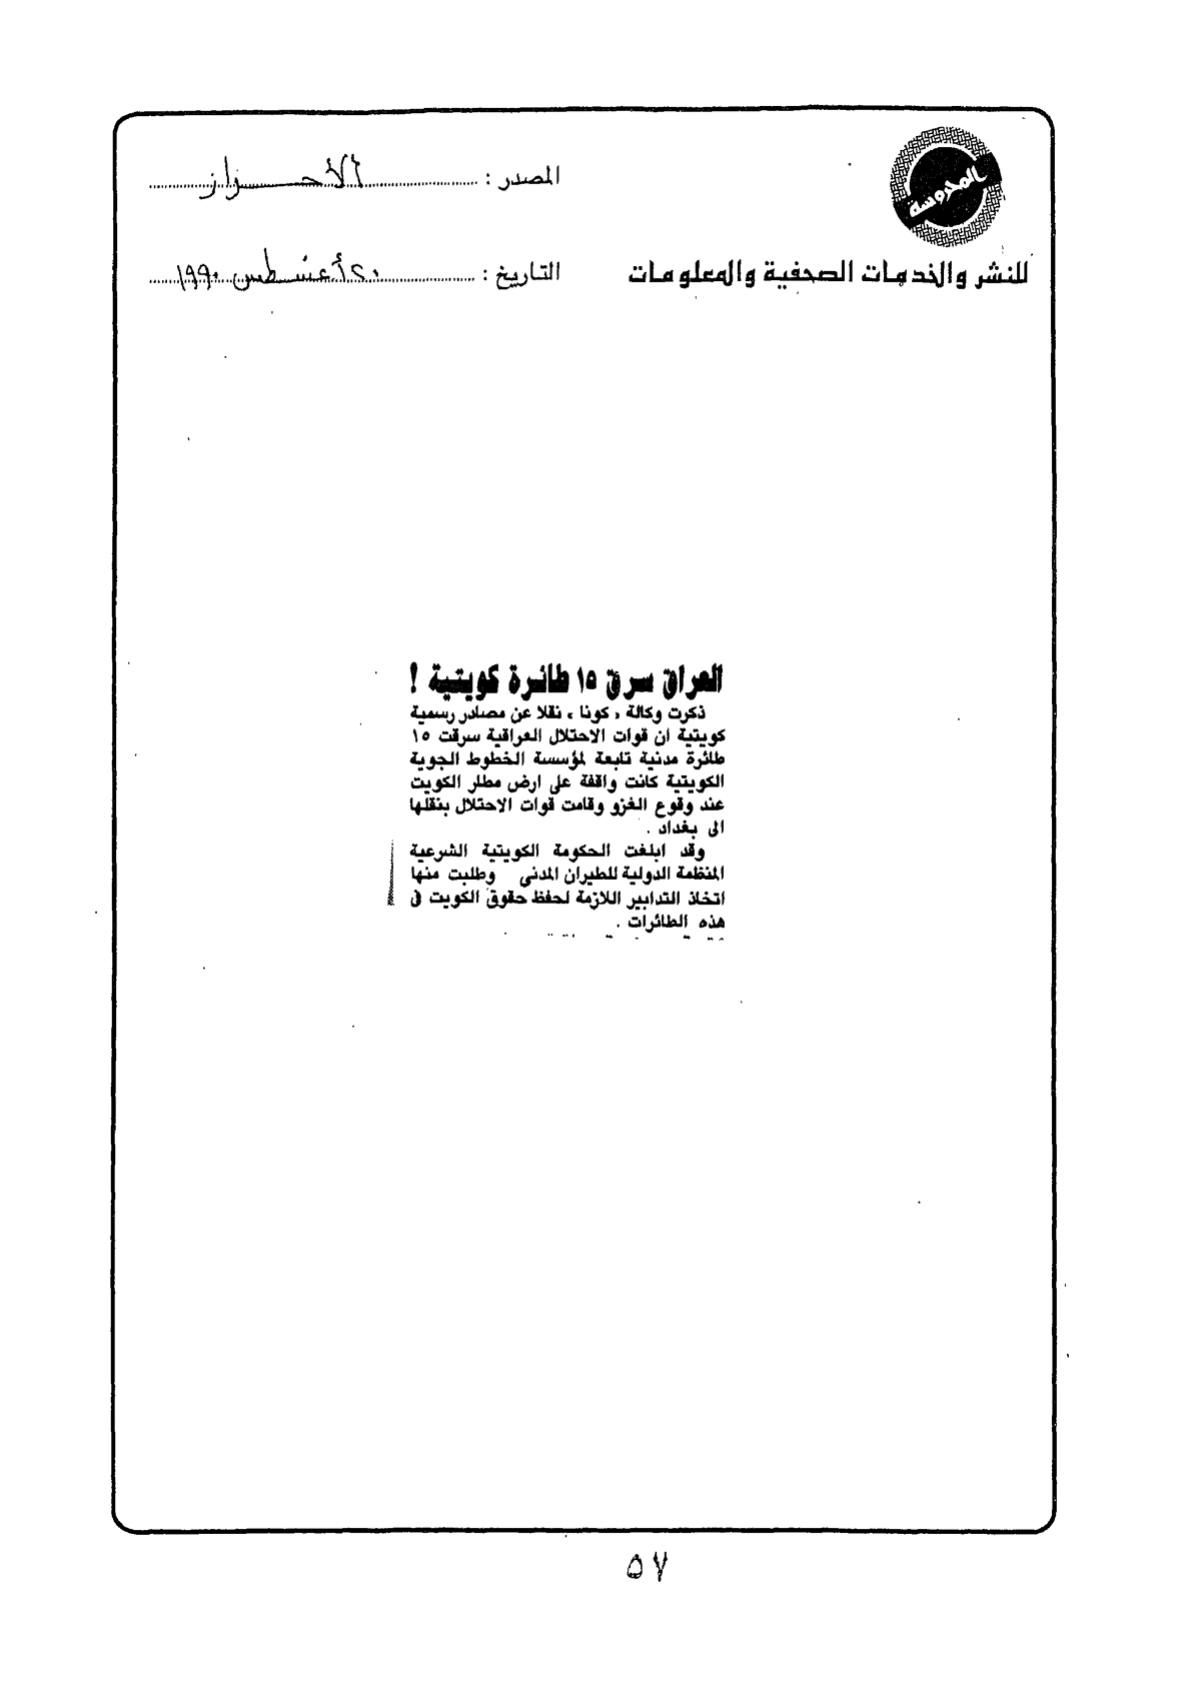 المحروسة
للنشر والخدمات الصحفية والمعلومات
المصدر : الأحرار
التاريخ : ٢٠ أغسطس ١٩٩٠
العراق سرق ١٥ طائرة كويتية !
ذكرت وكالة « كونا » نقلا عن مصادر رسمية
كويتية ان قوات الاحتلال العراقية سرقت ١٥
طائرة مدنية تابعة لمؤسسة الخطوط الجوية
الكويتية كانت واقفة على ارض مطار الكويت
عند وقوع الغزو وقامت قوات الاحتلال بنقلها
الى بغداد .
وقد ابلغت الحكومة الكويتية الشرعية
المنظمة الدولية للطيران المدنى وطلبت منها
اتخاذ التدابير اللازمة لحفظ حقوق الكويت فى
هذه الطائرات .
٥٧